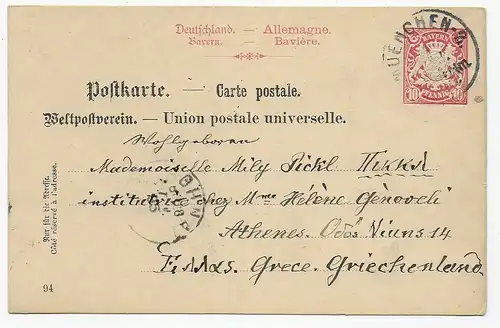 Deutschland. — Allemagne.
Bayern. — Bavière.
MUENCHEN 2.
BAYERN
10 PFENNIG 10
Postkarte. — Carte postale.
Weltpostverein. — Union postale universelle.
Nur für die Adresse.
Côté réservé à l'adresse.
Wohlgeboren
Mademoiselle Mily Pickl Πικκλ
institutrice chez Mme Hélène Génoveli
Athènes. Odós
14
Ελλάς. Grece. Griechenland.
94